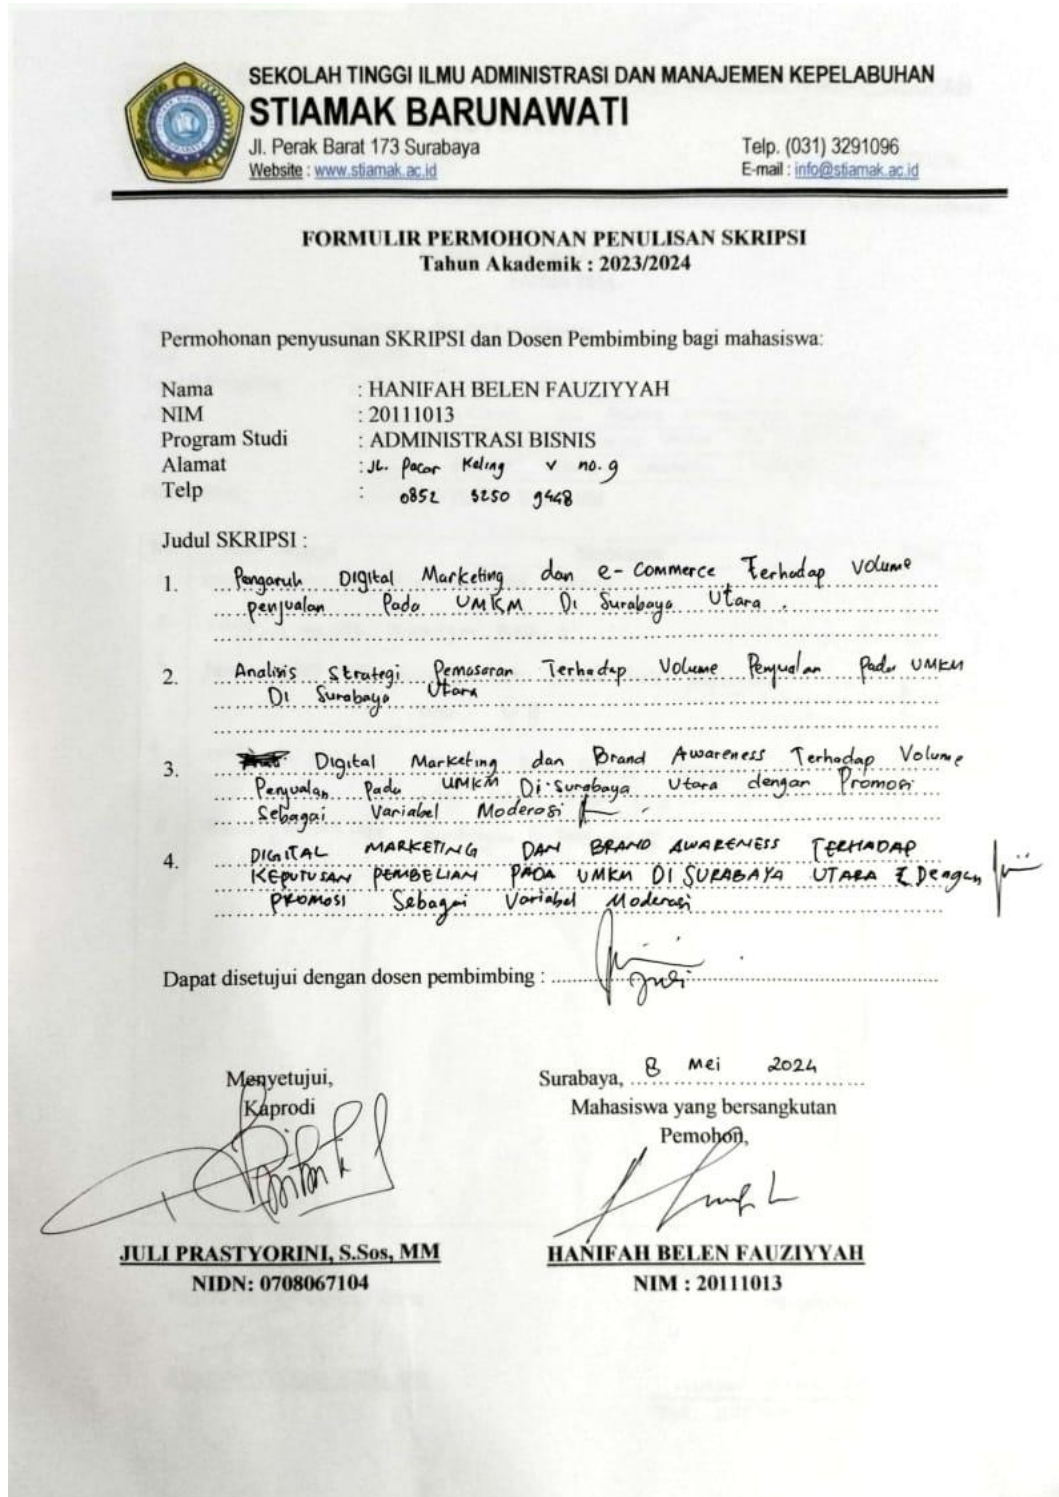 SEKOLAH TINGGI ILMU ADMINISTRASI DAN MANAJEMEN KEPELABUHAN
STIAMAK BARUNAWATI
Jl. Perak Barat 173 Surabaya Telp. (031) 3291096
Website : www.stiamak.ac.id E-mail : info@stiamak.ac.id
FORMULIR PERMOHONAN PENULISAN SKRIPSI
Tahun Akademik : 2023/2024
Permohonan penyusunan SKRIPSI dan Dosen Pembimbing bagi mahasiswa:
Nama : HANIFAH BELEN FAUZIYYAH
NIM : 20111013
Program Studi : ADMINISTRASI BISNIS
Alamat : JL. Pacar Keling V no. 9
Telp : 0852 3250 9448
Judul SKRIPSI :
1. Pengaruh Digital Marketing dan e-commerce Terhadap Volume
penjualan Pada UMKM Di Surabaya Utara .
2. Analisis Strategi Pemasaran Terhadap Volume Penjualan pada UMKM
Di Surabaya Utara
3. Digital Marketing dan Brand Awareness Terhadap Volume
Penjualan Pada UMKM Di Surabaya Utara dengan Promosi
Sebagai Variabel Moderasi
4. DIGITAL MARKETING DAN BRAND AWARENESS TERHADAP
KEPUTUSAN PEMBELIAN PADA UMKM DI SURABAYA UTARA Dengan
PROMOSI Sebagai Variabel Moderasi
Dapat disetujui dengan dosen pembimbing : Juli
Menyetujui, Surabaya, 8 Mei 2024
Kaprodi Mahasiswa yang bersangkutan
Pemohon,
JULI PRASTYORINI, S.Sos, MM HANIFAH BELEN FAUZIYYAH
NIDN: 0708067104 NIM : 20111013